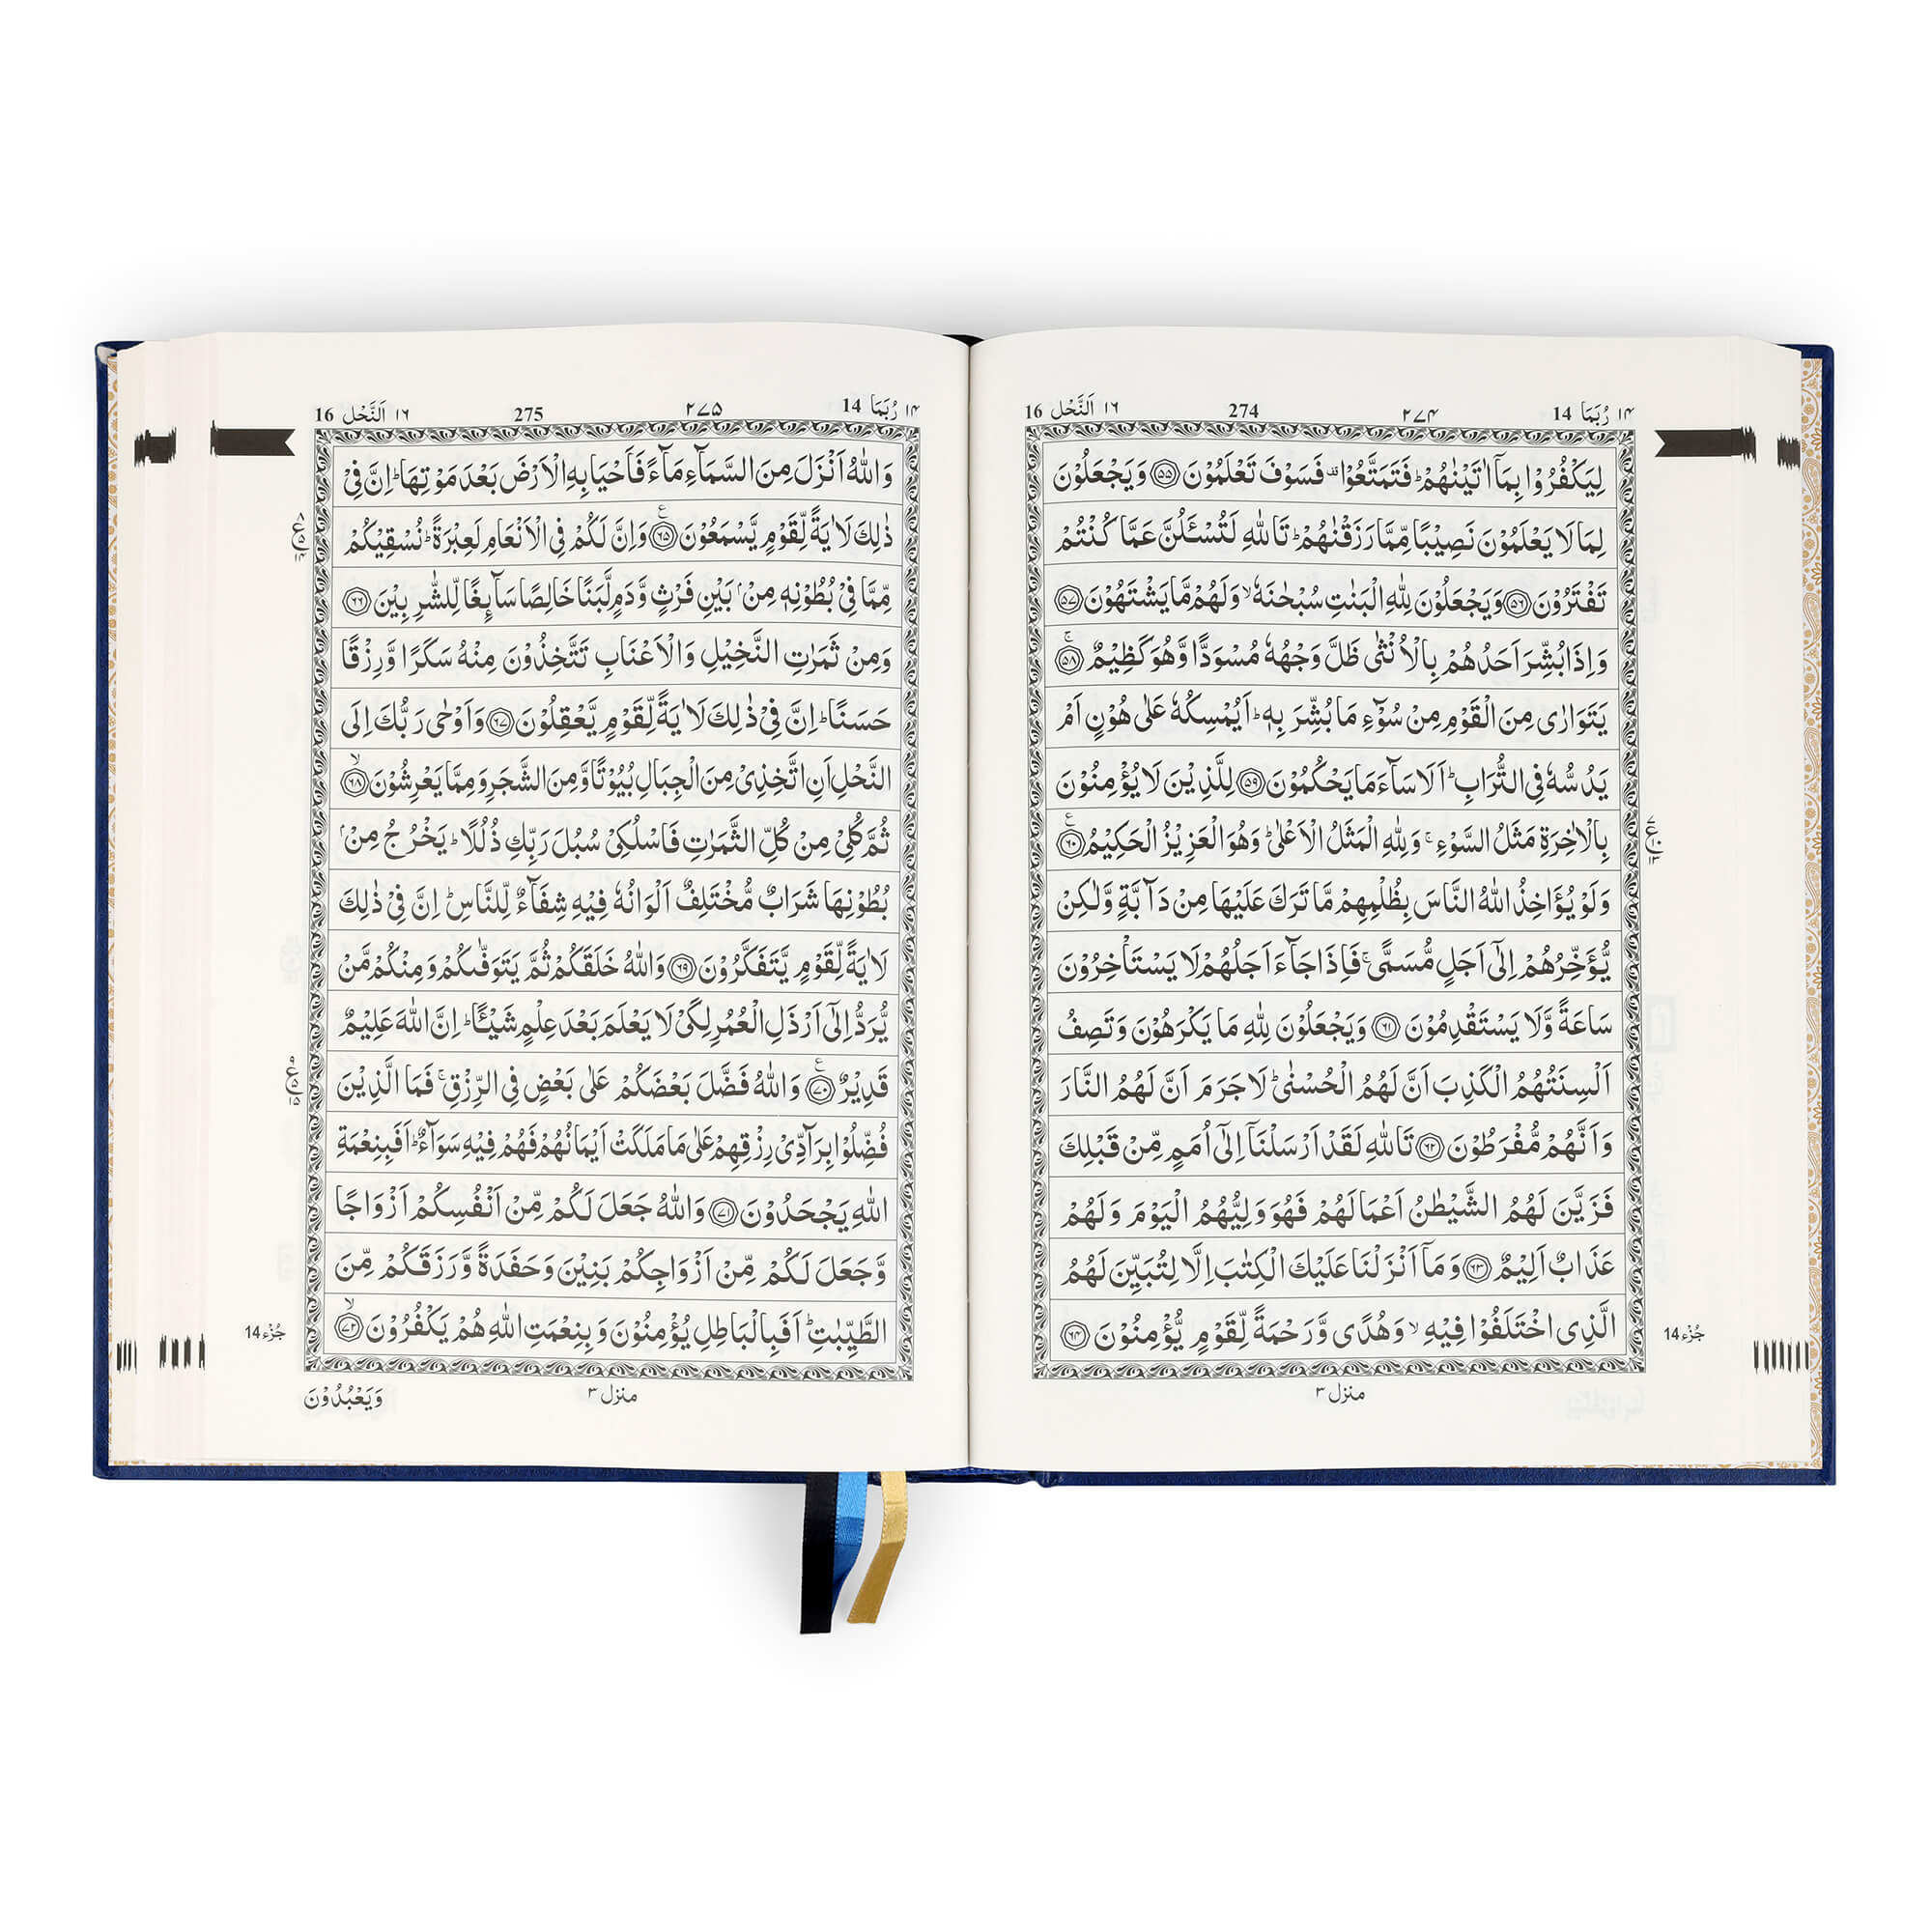 ١٤ رُبَمَا 14 ٢٧٤ 274 ١٦ اَلنَّحْل 16
لِيَكْفُرُوْا بِمَاۤ اٰتَيْنٰهُمْ ؕ فَتَمَتَّعُوْا ۫ فَسَوْفَ تَعْلَمُوْنَ ﴿۵۵﴾ وَيَجْعَلُوْنَ
لِمَا لَا يَعْلَمُوْنَ نَصِيْبًا مِّمَّا رَزَقْنٰهُمْ ؕ تَاللّٰهِ لَتُسْـَٔلُنَّ عَمَّا كُنْتُمْ
تَفْتَرُوْنَ ﴿۵۶﴾ وَيَجْعَلُوْنَ لِلّٰهِ الْبَنٰتِ سُبْحٰنَهٗ ۙ وَلَهُمْ مَّا يَشْتَهُوْنَ ﴿۵۷﴾
وَاِذَا بُشِّرَ اَحَدُهُمْ بِالْاُنْثٰى ظَلَّ وَجْهُهٗ مُسْوَدًّا وَّهُوَ كَظِيْمٌ ۚ ﴿۵۸﴾
يَتَوَارٰى مِنَ الْقَوْمِ مِنْ سُوْٓءِ مَا بُشِّرَ بِهٖ ؕ اَيُمْسِكُهٗ عَلٰى هُوْنٍ اَمْ
يَدُسُّهٗ فِى التُّرَابِ ؕ اَلَا سَآءَ مَا يَحْكُمُوْنَ ﴿۵۹﴾ لِلَّذِيْنَ لَا يُؤْمِنُوْنَ
بِالْاٰخِرَةِ مَثَلُ السَّوْءِ ۚ وَلِلّٰهِ الْمَثَلُ الْاَعْلٰى ؕ وَهُوَ الْعَزِيْزُ الْحَكِيْمُ ﴿۶۰﴾
وَلَوْ يُؤَاخِذُ اللّٰهُ النَّاسَ بِظُلْمِهِمْ مَّا تَرَكَ عَلَيْهَا مِنْ دَآبَّةٍ وَّلٰكِنْ
يُّؤَخِّرُهُمْ اِلٰٓى اَجَلٍ مُّسَمًّى ۚ فَاِذَا جَآءَ اَجَلُهُمْ لَا يَسْتَاْخِرُوْنَ
سَاعَةً وَّلَا يَسْتَقْدِمُوْنَ ﴿۶۱﴾ وَيَجْعَلُوْنَ لِلّٰهِ مَا يَكْرَهُوْنَ وَتَصِفُ
اَلْسِنَتُهُمُ الْكَذِبَ اَنَّ لَهُمُ الْحُسْنٰى ؕ لَا جَرَمَ اَنَّ لَهُمُ النَّارَ
وَاَنَّهُمْ مُّفْرَطُوْنَ ﴿۶۲﴾ تَاللّٰهِ لَقَدْ اَرْسَلْنَاۤ اِلٰٓى اُمَمٍ مِّنْ قَبْلِكَ
فَزَيَّنَ لَهُمُ الشَّيْطٰنُ اَعْمَالَهُمْ فَهُوَ وَلِيُّهُمُ الْيَوْمَ وَلَهُمْ
عَذَابٌ اَلِيْمٌ ﴿۶۳﴾ وَمَاۤ اَنْزَلْنَا عَلَيْكَ الْكِتٰبَ اِلَّا لِتُبَيِّنَ لَهُمُ
الَّذِى اخْتَلَفُوْا فِيْهِ ۙ وَهُدًى وَّرَحْمَةً لِّقَوْمٍ يُّؤْمِنُوْنَ ﴿۶۴﴾
جُزْء 14
منزل ٣
١٤ رُبَمَا 14 ٢٧٥ 275 ١٦ اَلنَّحْل 16
وَاللّٰهُ اَنْزَلَ مِنَ السَّمَآءِ مَآءً فَاَحْيَا بِهِ الْاَرْضَ بَعْدَ مَوْتِهَا ؕ اِنَّ فِىْ
ذٰلِكَ لَاٰيَةً لِّقَوْمٍ يَّسْمَعُوْنَ ﴿۶۵﴾ وَاِنَّ لَكُمْ فِى الْاَنْعَامِ لَعِبْرَةً ؕ نُسْقِيْكُمْ
مِّمَّا فِىْ بُطُوْنِهٖ مِنْۢ بَيْنِ فَرْثٍ وَّدَمٍ لَّبَنًا خَالِصًا سَآئِغًا لِّلشّٰرِبِيْنَ ﴿۶۶﴾
وَمِنْ ثَمَرٰتِ النَّخِيْلِ وَالْاَعْنَابِ تَتَّخِذُوْنَ مِنْهُ سَكَرًا وَّرِزْقًا
حَسَنًا ؕ اِنَّ فِىْ ذٰلِكَ لَاٰيَةً لِّقَوْمٍ يَّعْقِلُوْنَ ﴿۶۷﴾ وَاَوْحٰى رَبُّكَ اِلَى
النَّحْلِ اَنِ اتَّخِذِىْ مِنَ الْجِبَالِ بُيُوْتًا وَّمِنَ الشَّجَرِ وَمِمَّا يَعْرِشُوْنَ ۙ ﴿۶۸﴾
ثُمَّ كُلِىْ مِنْ كُلِّ الثَّمَرٰتِ فَاسْلُكِىْ سُبُلَ رَبِّكِ ذُلُلًا ؕ يَخْرُجُ مِنْۢ
بُطُوْنِهَا شَرَابٌ مُّخْتَلِفٌ اَلْوَانُهٗ فِيْهِ شِفَآءٌ لِّلنَّاسِ ؕ اِنَّ فِىْ ذٰلِكَ
لَاٰيَةً لِّقَوْمٍ يَّتَفَكَّرُوْنَ ﴿۶۹﴾ وَاللّٰهُ خَلَقَكُمْ ثُمَّ يَتَوَفّٰىكُمْ وَمِنْكُمْ مَّنْ
يُّرَدُّ اِلٰٓى اَرْذَلِ الْعُمُرِ لِكَىْ لَا يَعْلَمَ بَعْدَ عِلْمٍ شَيْـًٔا ؕ اِنَّ اللّٰهَ عَلِيْمٌ
قَدِيْرٌ ﴿۷۰﴾ وَاللّٰهُ فَضَّلَ بَعْضَكُمْ عَلٰى بَعْضٍ فِى الرِّزْقِ ۚ فَمَا الَّذِيْنَ
فُضِّلُوْا بِرَآدِّىْ رِزْقِهِمْ عَلٰى مَا مَلَكَتْ اَيْمَانُهُمْ فَهُمْ فِيْهِ سَوَآءٌ ؕ اَفَبِنِعْمَةِ
اللّٰهِ يَجْحَدُوْنَ ﴿۷۱﴾ وَاللّٰهُ جَعَلَ لَكُمْ مِّنْ اَنْفُسِكُمْ اَزْوَاجًا
وَّجَعَلَ لَكُمْ مِّنْ اَزْوَاجِكُمْ بَنِيْنَ وَحَفَدَةً وَّرَزَقَكُمْ مِّنَ
الطَّيِّبٰتِ ؕ اَفَبِالْبَاطِلِ يُؤْمِنُوْنَ وَبِنِعْمَتِ اللّٰهِ هُمْ يَكْفُرُوْنَ ۙ ﴿۷۲﴾
جُزْء 14
منزل ٣
وَيَعْبُدُوْنَ